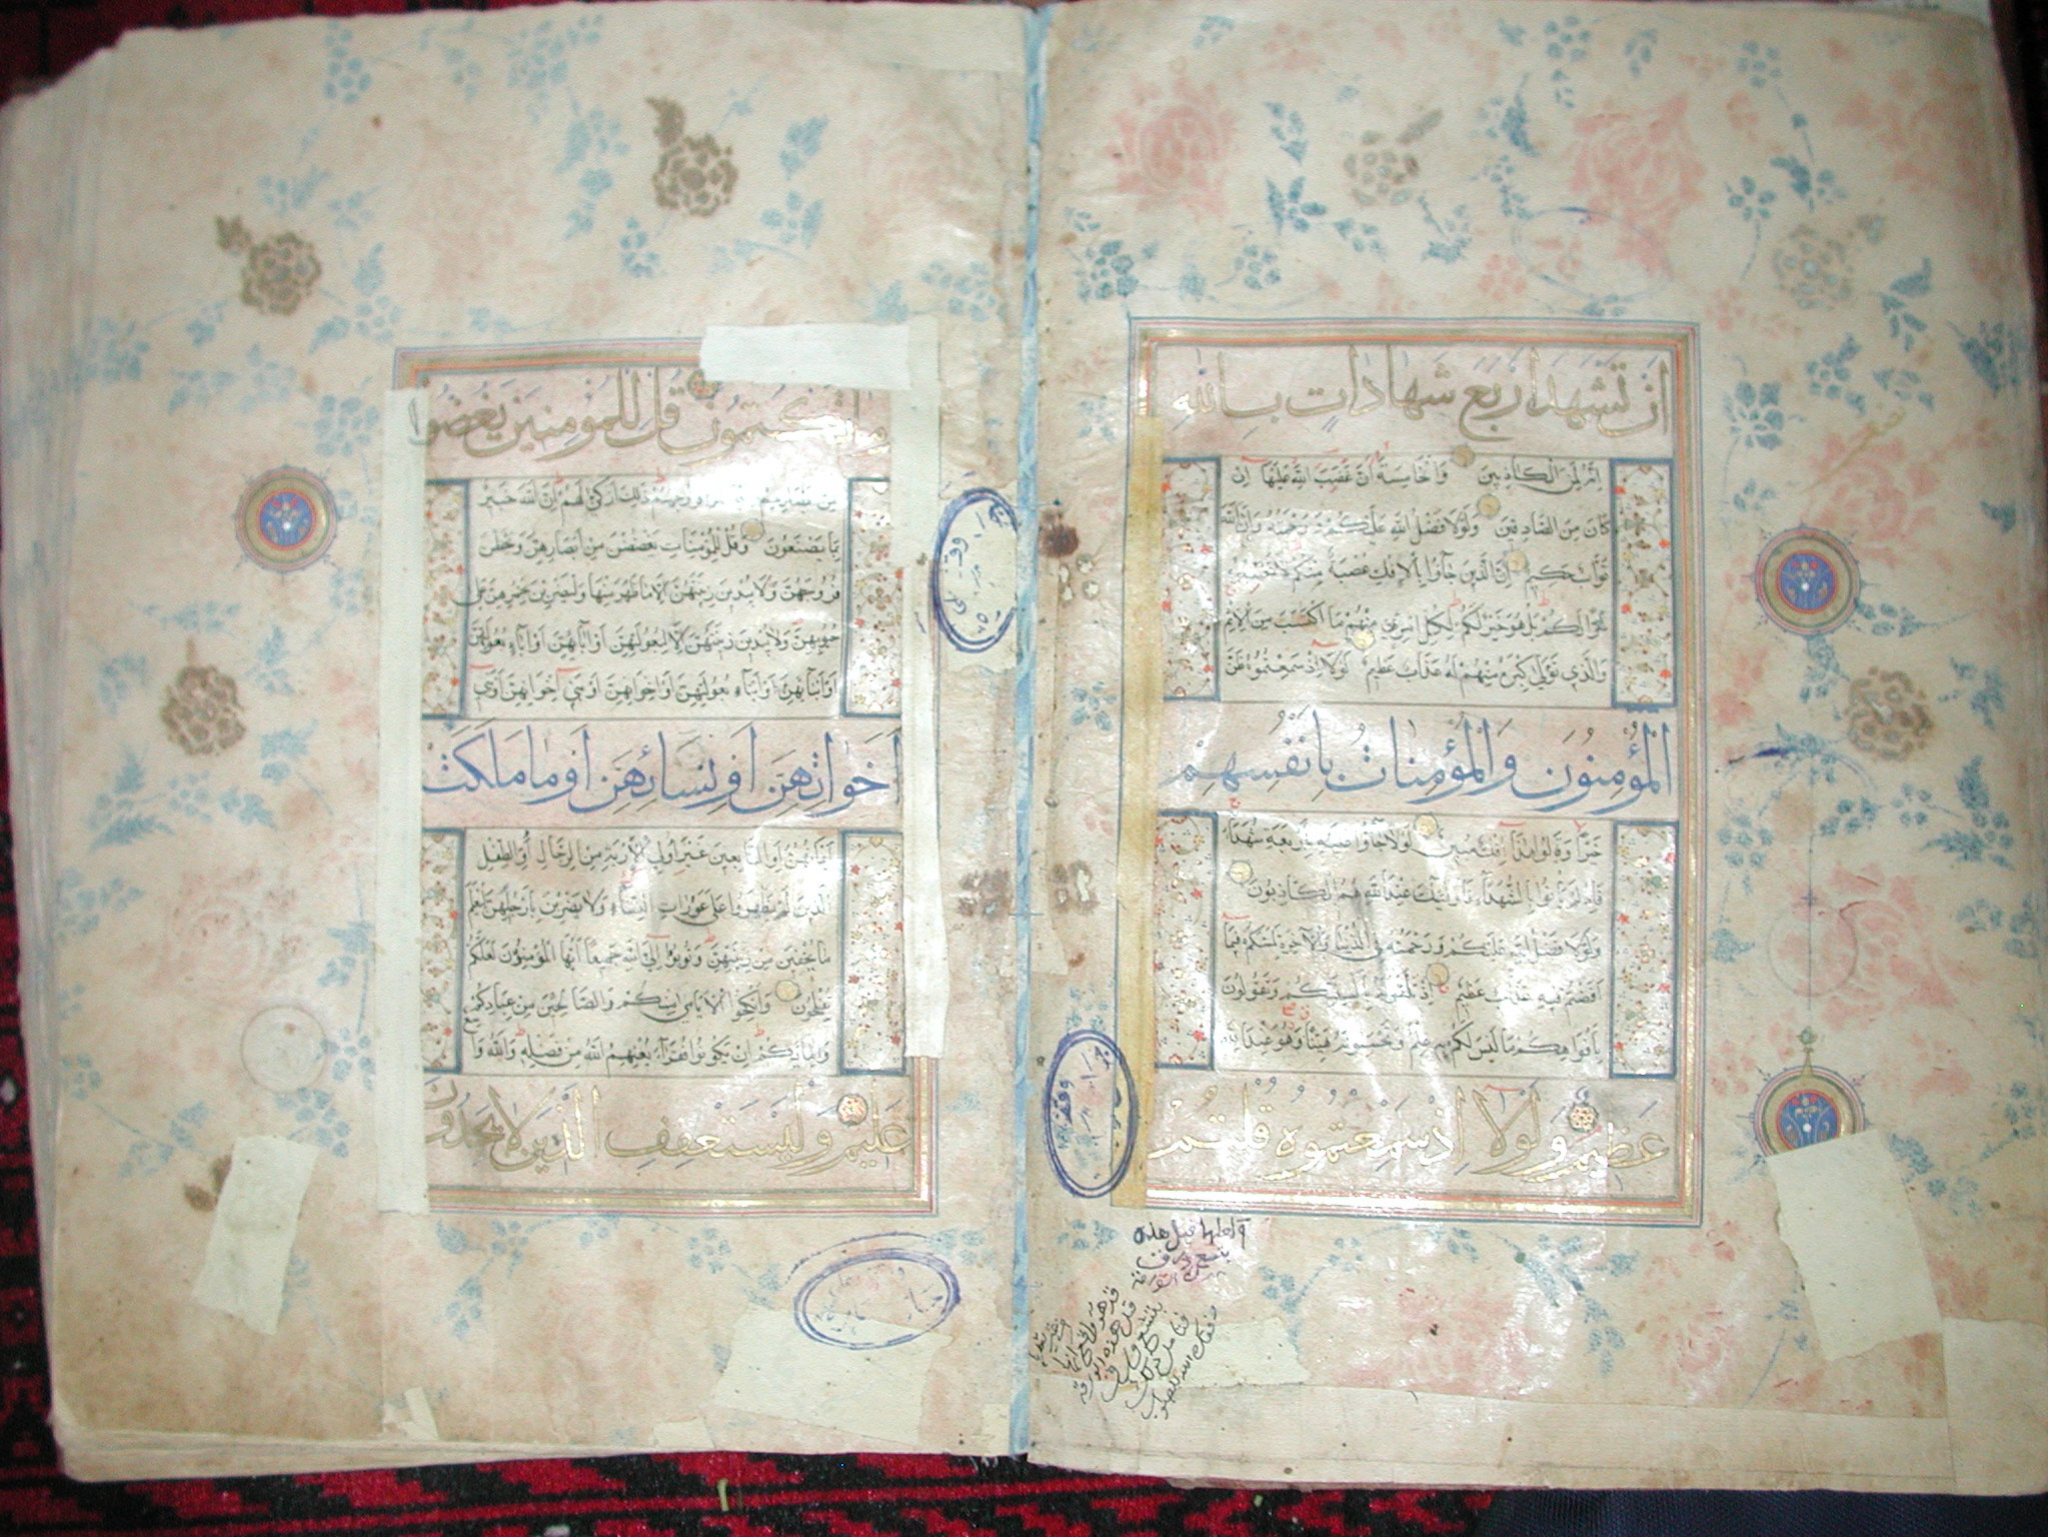 ان تشهد اربع شهادات بالله
انه لمن الكاذبين والخامسة ان غضب الله عليها ان
كان من الصادقين ولولا فضل الله عليكم ورحمته وان الله
تواب حكيم ان الذين جاؤا بالافك عصبة منكم لا تحسبوه
شرا لكم بل هو خير لكم لكل امرئ منهم ما اكتسب من الاثم
والذي تولى كبره منهم له عذاب عظيم لولا اذ سمعتموه ظن
المؤمنون والمؤمنات بانفسهم
خيرا وقالوا هذا افك مبين لولا جاؤا عليه باربعة شهداء
فاذ لم ياتوا بالشهداء فاولئك عند الله هم الكاذبون
ولولا فضل الله عليكم ورحمته في الدنيا والاخرة لمسكم فيما
افضتم فيه عذاب عظيم اذ تلقونه بالسنتكم وتقولون
بافواهكم ما ليس لكم به علم وتحسبونه هينا وهو عند الله
عظيم ولولا اذ سمعتموه قلتم
قبل هذه
وقف
ما تكتمون قل للمؤمنين يغضوا
من ابصارهم ويحفظوا فروجهم ذلك ازكى لهم ان الله خبير
بما يصنعون وقل للمؤمنات يغضضن من ابصارهن ويحفظن
فروجهن ولا يبدين زينتهن الا ما ظهر منها وليضربن بخمرهن على
جيوبهن ولا يبدين زينتهن الا لبعولتهن او ابائهن او اباء بعولتهن
او ابنائهن او ابناء بعولتهن او اخوانهن او بني اخوانهن او بني
اخواتهن او نسائهن او ما ملكت
ايمانهن او التابعين غير اولي الاربة من الرجال او الطفل
الذين لم يظهروا على عورات النساء ولا يضربن بارجلهن ليعلم
ما يخفين من زينتهن وتوبوا الى الله جميعا ايها المؤمنون لعلكم
تفلحون وانكحوا الايامى منكم والصالحين من عبادكم
وامائكم ان يكونوا فقراء يغنيهم الله من فضله والله واسع
عليم وليستعفف الذين لا يجدون
وقف